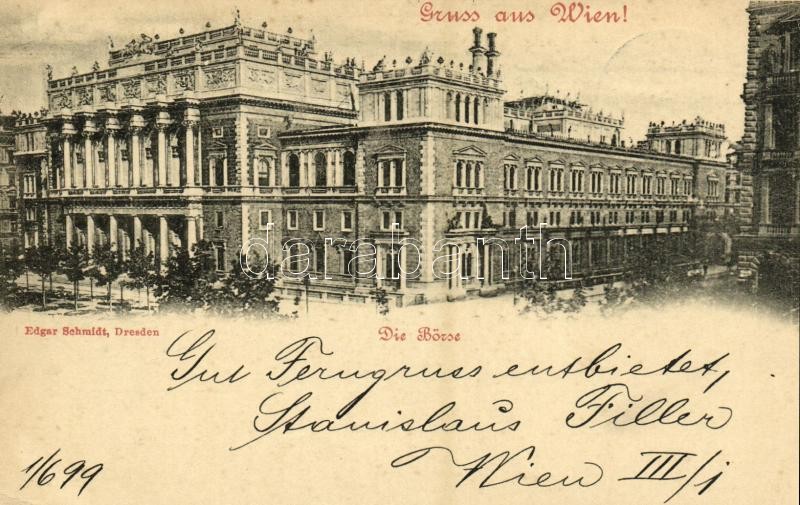 Gruss aus Wien!
darabanth
Edgar Schmidt, Dresden
Die Börse
Gut Ferngruss entbietet,
Stanislaus Filler
Wien III/1
1/6 99